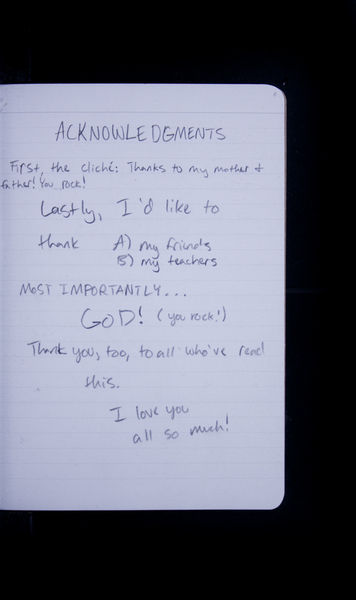 ACKNOWLEDGMENTS
First, the cliché: Thanks to my mother &
father! You rock!
Lastly, I'd like to
thank A) my friends
B) my teachers
MOST IMPORTANTLY...
GOD! (you rock!)
Thank you, too, to all who've read
this.
I love you
all so much!